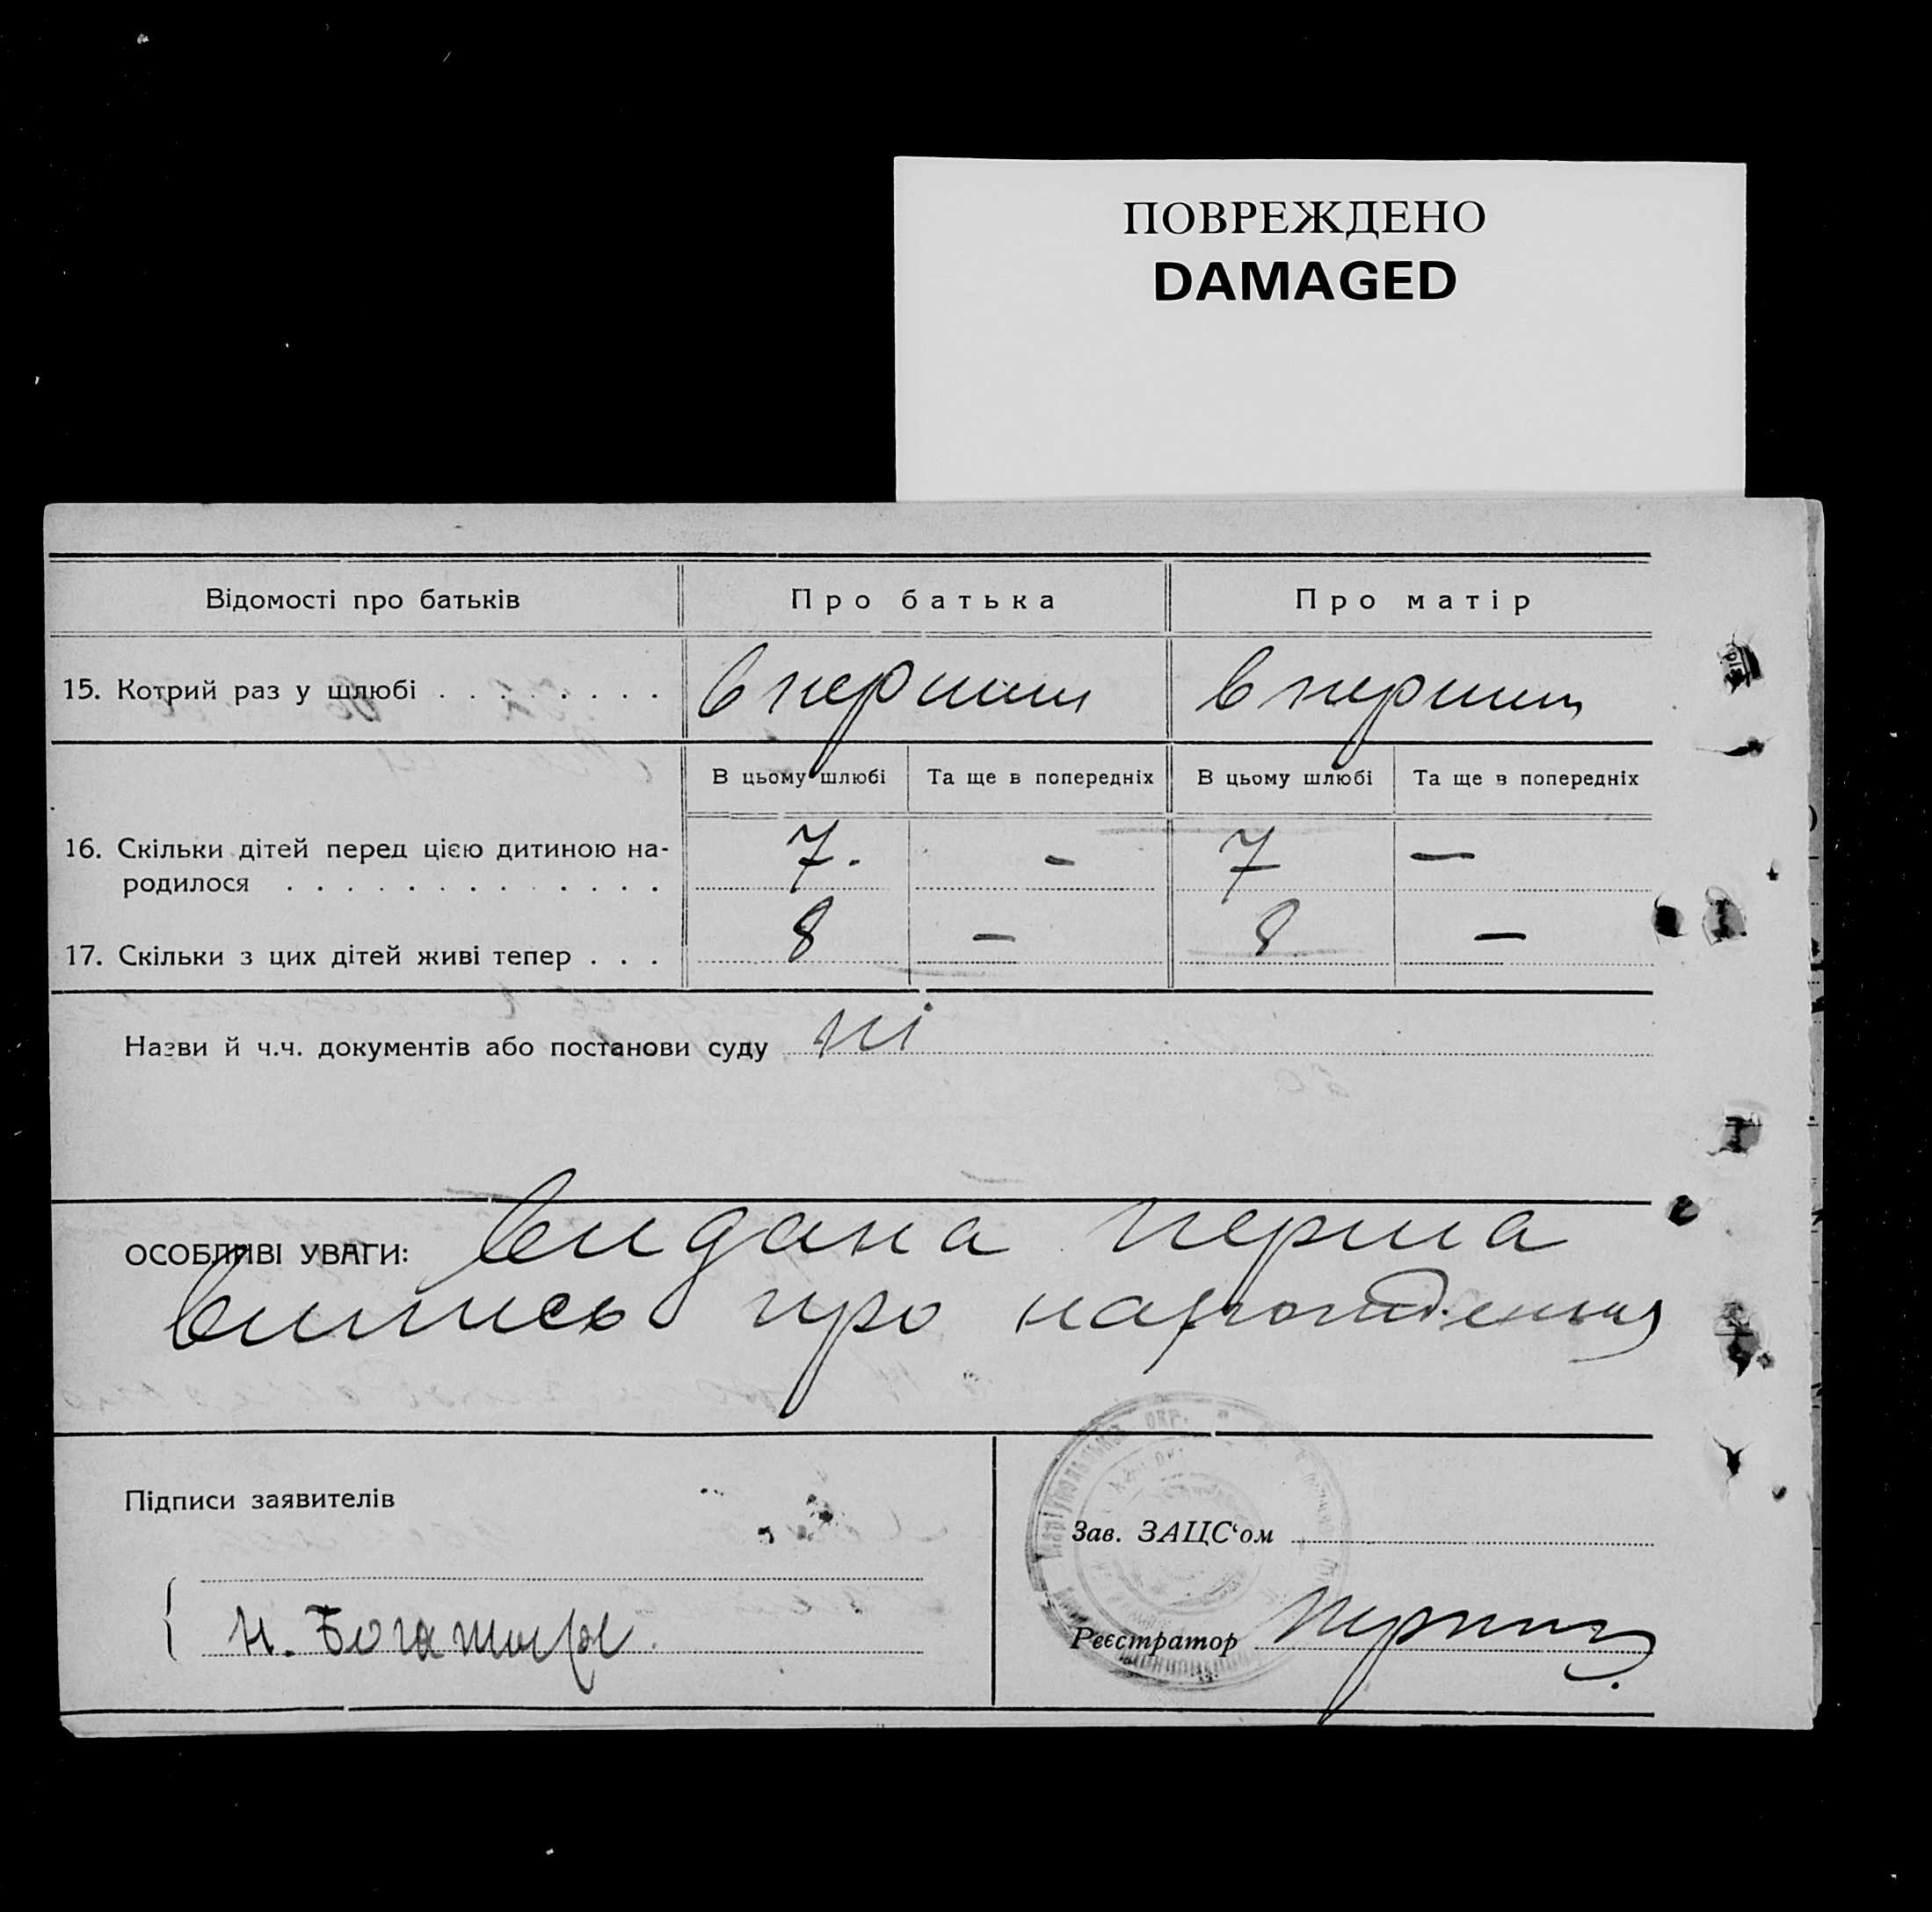 ПОВРЕЖДЕНО
DAMAGED
Відомості про батьків Про батька Про матір
15. Котрий раз у шлюбі . . . . . . . . в перший в перший
В цьому шлюбі Та ще в попередніх В цьому шлюбі Та ще в попередніх
16. Скільки дітей перед цією дитиною на- 7. – 7 —
родилося . . . . . . . . . . . . .
17. Скільки з цих дітей живі тепер . . . 8 — 8 —
Назви й ч.ч. документів або постанови суду ні
ОСОБЛИВІ УВАГИ: Видана перша
випись про народження
Підписи заявителів
Зав. ЗАЦС‘ом
Н.
Реєстратор
Маріупольської окр.